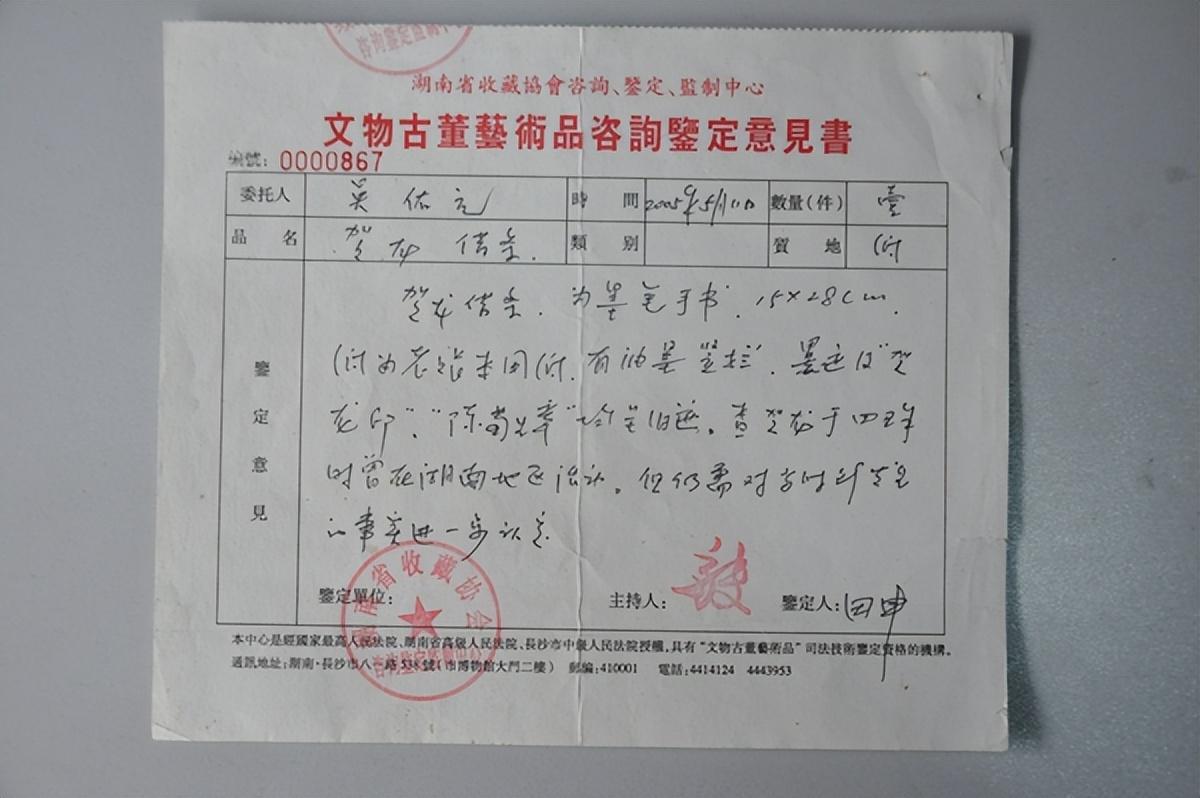 咨詢鑒定監制中
湖南省收藏協會咨詢、鑒定、監制中心
文物古董藝術品咨詢鑒定意見書
編號：0000867
委托人 吴佑 時間 2005年5月11日 數量（件） 壹
品名 贺龙借条. 類別 質地 纸
鑒定意見
贺龙借条. 为墨笔手书. 15×28cm.
纸为老 纸. 有油墨竖栏". 墨色及"贺
龙印"、"陈 章" 旧迹。查贺龙于四五年
时曾在湖南地区活动。但仍需对当时
的事实进一步认定
鑒定單位： 主持人： 鑒定人：田申
湖南省收藏协会
咨詢鑒定監制中心
本中心是經國家最高人民法院、湖南省高級人民法院、長沙市中級人民法院授權，具有“文物古董藝術品”司法技術鑒定資格的機構。
通訊地址：湖南·長沙市八一路538號（市博物館大門二樓） 郵編：410001 電話：4414124 4443953